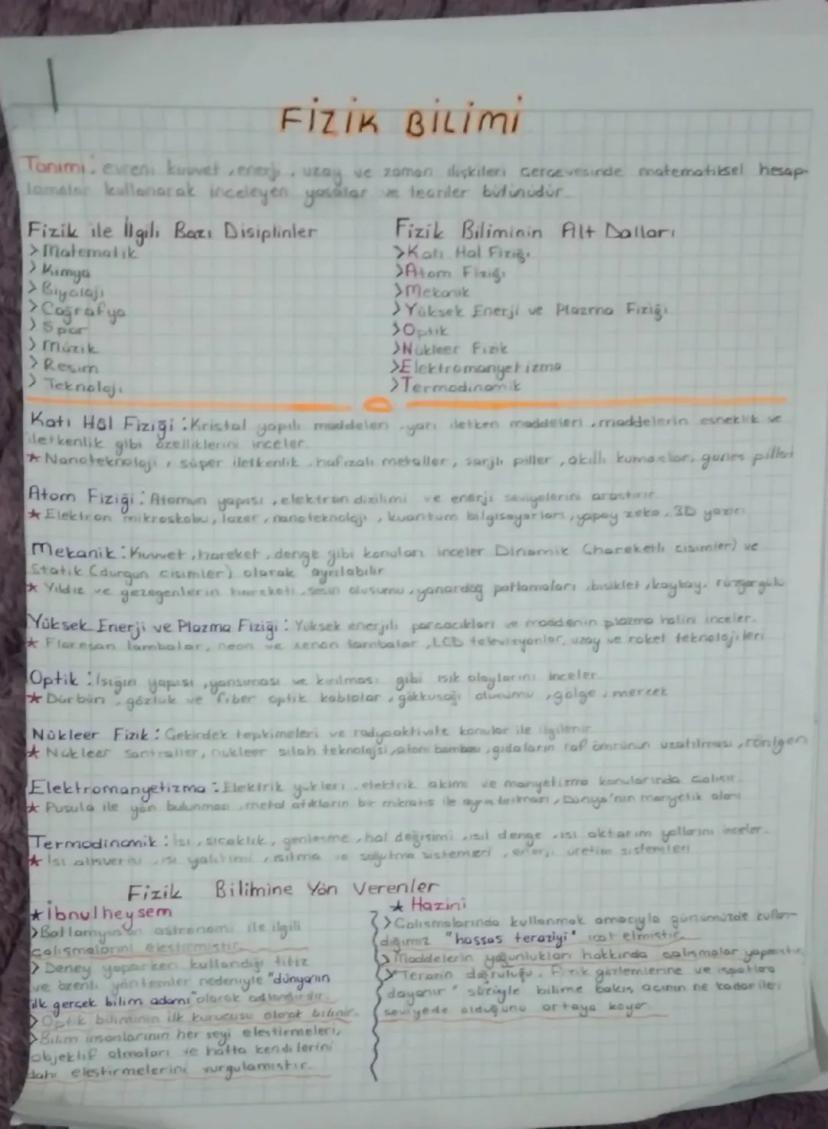 FİZİK BİLİMİ
Tanımı: evreni kuvvet, enerji, uzay ve zaman ilişkileri çerçevesinde matematiksel hesap-
lamalar kullanarak inceleyen yasalar ve teoriler bütünüdür.
Fizik ile İlgili Bazı Disiplinler
>Matematik
>Kimya
>Biyoloji
>Coğrafya
>Spor
>Müzik
>Resim
>Teknoloji
Fizik Biliminin Alt Dalları
>Katı Hal Fiziği
>Atom Fiziği
>Mekanik
>Yüksek Enerji ve Plazma Fiziği
>Optik
>Nükleer Fizik
>Elektromanyetizma
>Termodinamik
Katı Hal Fiziği: Kristal yapılı maddeleri, yarı iletken maddeleri, maddelerin esneklik ve
iletkenlik gibi özelliklerini inceler.
★ Nanoteknoloji, süper iletkenlik, hafızalı metaller, şarjlı piller, akıllı kumaşlar, güneş pilleri
Atom Fiziği: Atomun yapısı, elektron dizilimi ve enerji seviyelerini araştırır.
★ Elektron mikroskobu, lazer, nanoteknoloji, kuantum bilgisayarları, yapay zeka, 3D yazıcı
Mekanik: Kuvvet, hareket, denge gibi konuları inceler Dinamik (hareketli cisimler) ve
Statik (durgun cisimler) olarak ayrılabilir
★ Yıldız ve gezegenlerin hareketi, sesin oluşumu, yanardağ patlamaları, bisiklet, kaykay, rüzgargülü
Yüksek Enerji ve Plazma Fiziği: Yüksek enerjili parçacıkları ve maddenin plazma halini inceler.
★ Floresan lambalar, neon ve xenon lambalar, LCD televizyonlar, uzay ve roket teknolojileri
Optik: Işığın yapısı, yansıması ve kırılması gibi ışık olaylarını inceler
★ Dürbün, gözlük ve fiber optik kablolar, gökkuşağı oluşumu, gölge, mercek
Nükleer Fizik: Çekirdek tepkimeleri ve radyoaktivite konuları ile ilgilenir
★ Nükleer santraller, nükleer silah teknolojisi, atom bombası, gıdaların raf ömrünün uzatılması, röntgen
Elektromanyetizma: Elektrik yükleri, elektrik akımı ve manyetizma konularında çalışır.
★ Pusula ile yön bulunması, metal atıkların bir mıknatıs ile ayrıştırılması, Dünya'nın manyetik alanı
Termodinamik: Isı, sıcaklık, genleşme, hal değişimi, ısıl denge, ısı aktarım yollarını inceler.
★ Isı alışverişi, ısı yalıtımı, ısıtma ve soğutma sistemleri, enerji üretim sistemleri
Fizik Bilimine Yön Verenler
★İbnulheysem
>Batlamyus'un astronomi ile ilgili
çalışmalarını eleştirmiştir
> Deney yaparken kullandığı titiz
ve özenli yöntemler nedeniyle "dünyanın
ilk gerçek bilim adamı" olarak adlandırılır.
> Optik biliminin ilk kurucusu olarak bilinir.
>Bilim insanlarının her şeyi eleştirmeleri,
objektif olmaları ve hatta kendilerini
dahi eleştirmelerini vurgulamıştır.
★ Hazini
>Çalışmalarında kullanmak amacıyla günümüzde kullan-
dığımız "hassas teraziyi" icat etmiştir.
>Maddelerin yoğunlukları hakkında çalışmalar yapmıştır
>"Terazin doğruluğu, fizik gözlemlerine ve ispatlara
dayanır" sözüyle bilime bakış açının ne kadar ileri
seviyede olduğunu ortaya koyar.